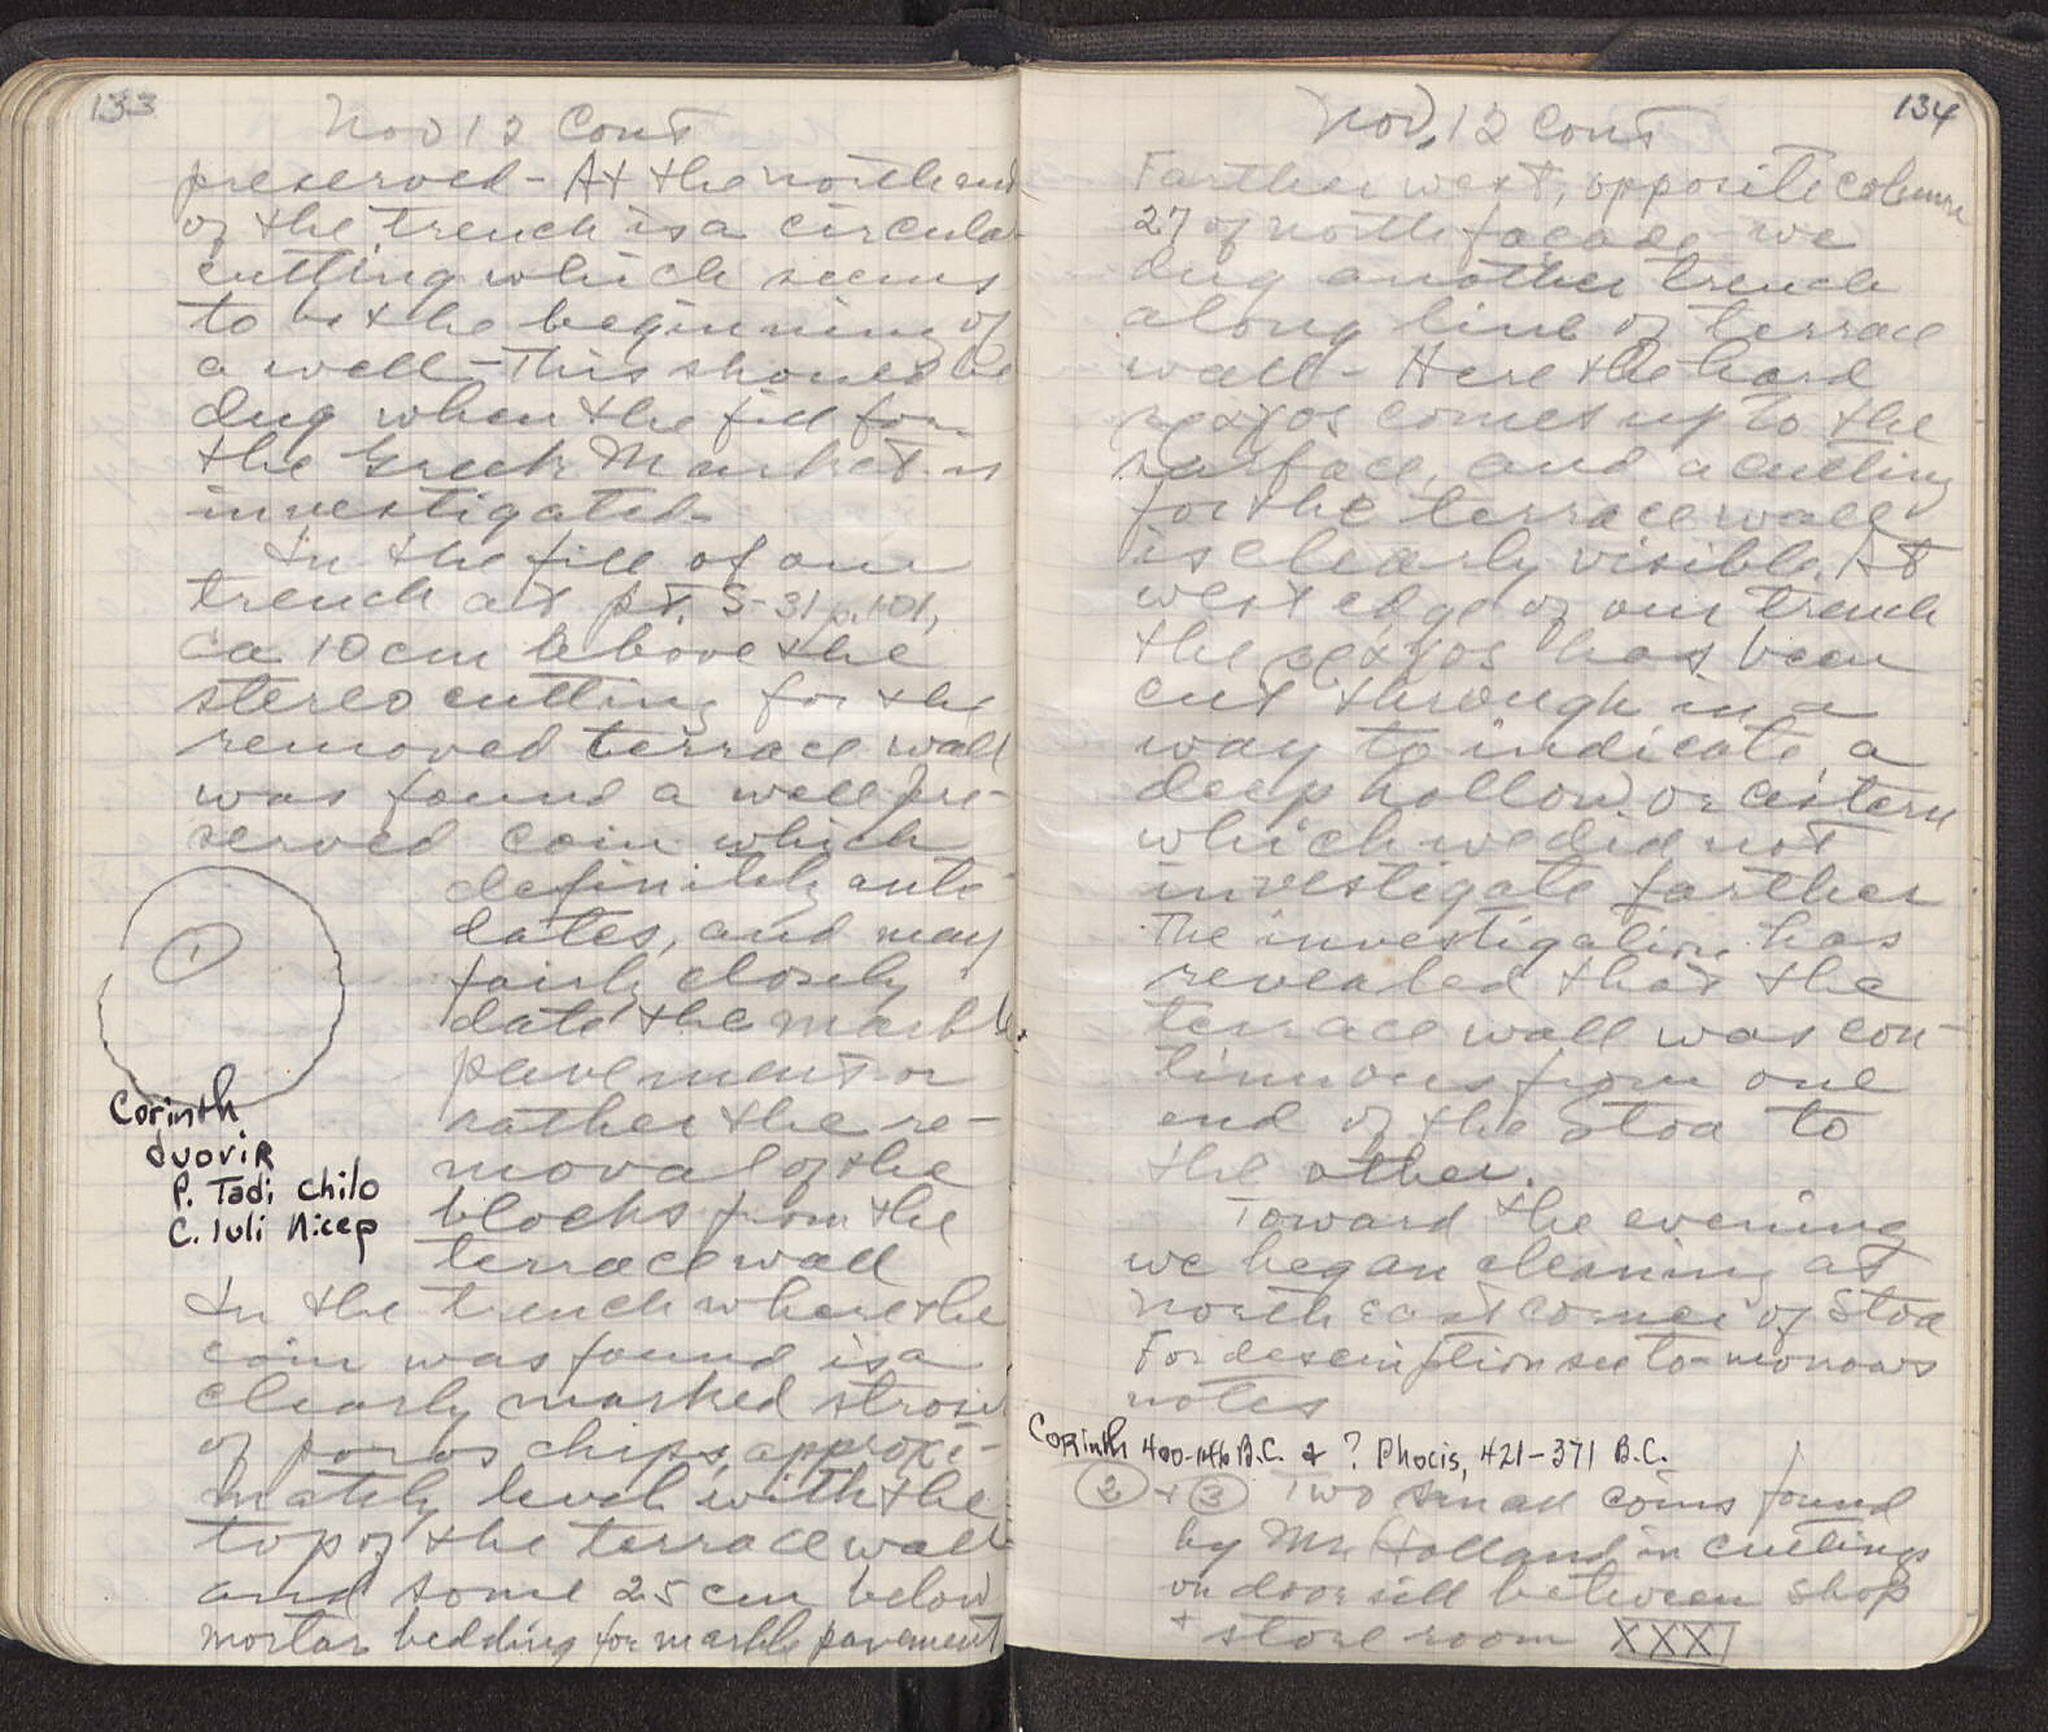 133
Nov 12 Cont
preserved - At the north end
of the trench is a circular
cutting which seems
to be the beginning of
a well - This should be
dug when the fill for
the Greek Market is
investigated -
In the fill of our
trench at pt. S-31 p. 101,
ca 10 cm above the
stereo cutting for the
removed terrace wall
was found a well pre-
served coin which
definitely ante-
dates, and may
fairly closely
date the marble
pavement or
rather the re-
moval of the
blocks from the
terrace wall
1
Corinth
duovir
P. Tadi Chilo
C. Iuli Nicep
In the trench where the
coin was found is a
clearly marked stroses
of poros chips, approxi-
mately level with the
top of the terrace wall
and some 25 cm below
mortar bedding for marble pavement
134
Nov, 12 Cont
Farther west, opposite column
27 of north façade we
dug another trench
along line of terrace
wall - Here the hard
comes up to the
surface, and a cutting
for the terrace wall
is clearly visible. At
west edge of our trench
the has been
cut through in a
way to indicate a
deep hollow or cistern
which we did not
investigate farther
The investigation has
revealed that the
terrace wall was con-
tinuous from one
end of the Stoa to
the other.
Toward the evening
we began cleaning at
north east corner of Stoa
For description see to-morrows
notes
Corinth 400-146 B.C. + ? Phocis, 421-371 B.C.
2 + 3 Two small coins found
by Mr. Holland in cuttings
on door sill between shop
+ store room XXXI